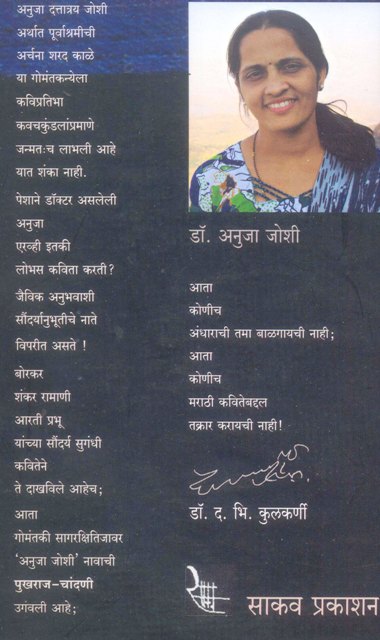 अनुजा दत्तात्रय जोशी
अर्थात पूर्वाश्रमीची
अर्चना शरद काळे
या गोमंतकन्येला
कविप्रतिभा
कवचकुंडलांप्रमाणे
जन्मतःच लाभली आहे
यात शंका नाही.
पेशाने डॉक्टर असलेली
अनुजा
एरव्ही इतकी
लोभस कविता करती?
जैविक अनुभवाशी
सौंदर्यानुभूतीचे नाते
विपरीत असते !
बोरकर
शंकर रामाणी
आरती प्रभू
यांच्या सौंदर्य सुगंधी
कवितेने
ते दाखविले आहेच;
आता
गोमंतकी सागरक्षितिजावर
'अनुजा जोशी' नावाची
पुखराज-चांदणी
उगंवली आहे;
डॉ. अनुजा जोशी
आता
कोणीच
अंधाराची तमा बाळगायची नाही;
आता
कोणीच
मराठी कवितेबद्दल
तक्रार करायची नाही!
डॉ. द. भि. कुलकर्णी
साकव प्रकाशन